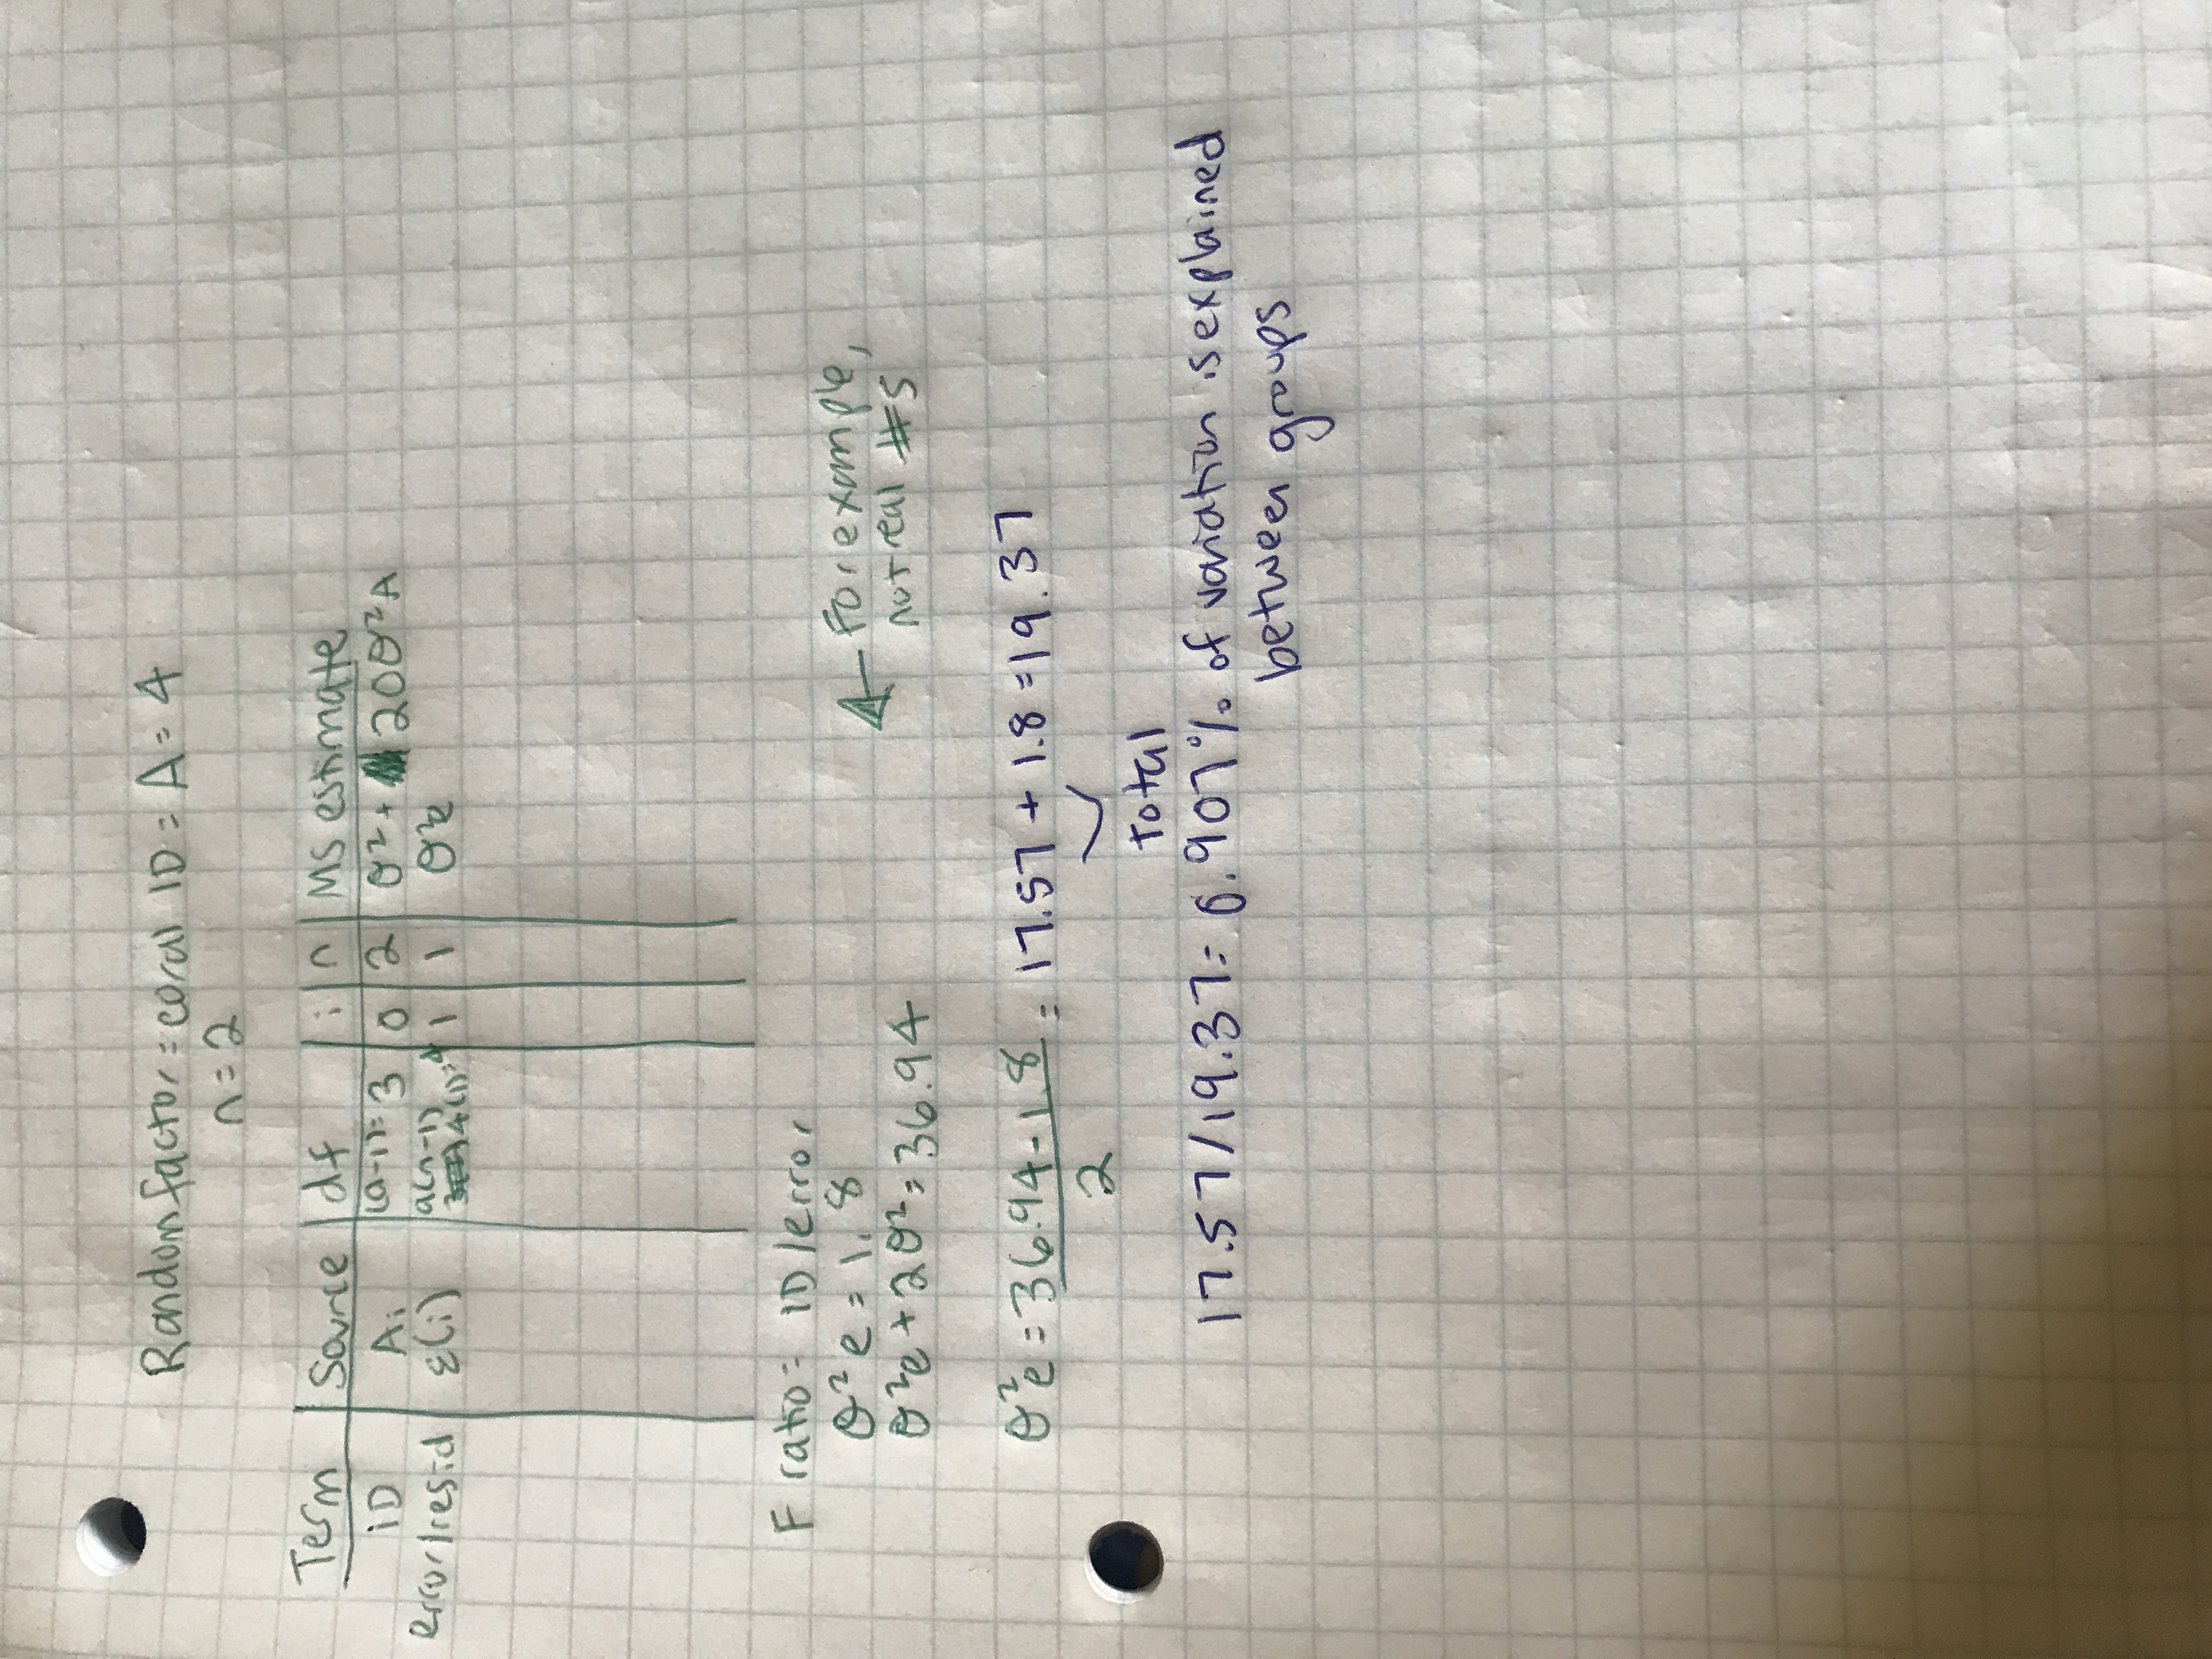 Random factor = coral ID = A = 4
n = 2
Term Source df i n MS estimate
iD Ai (a-1)= 3 0 2 σ² + 20σ²A
error/resid ε(i) a(n-1) 4(1)=4 1 1 σ²e
F ratio = ID/error
σ²e = 1.8
σ²e + 2σ² = 36.94
← For example,
not real #s
σ²e = 36.94 - 1.8 / 2 = 17.57 + 1.8 = 19.37
total
17.57/19.37 = 0.907% of variation is explained
between groups